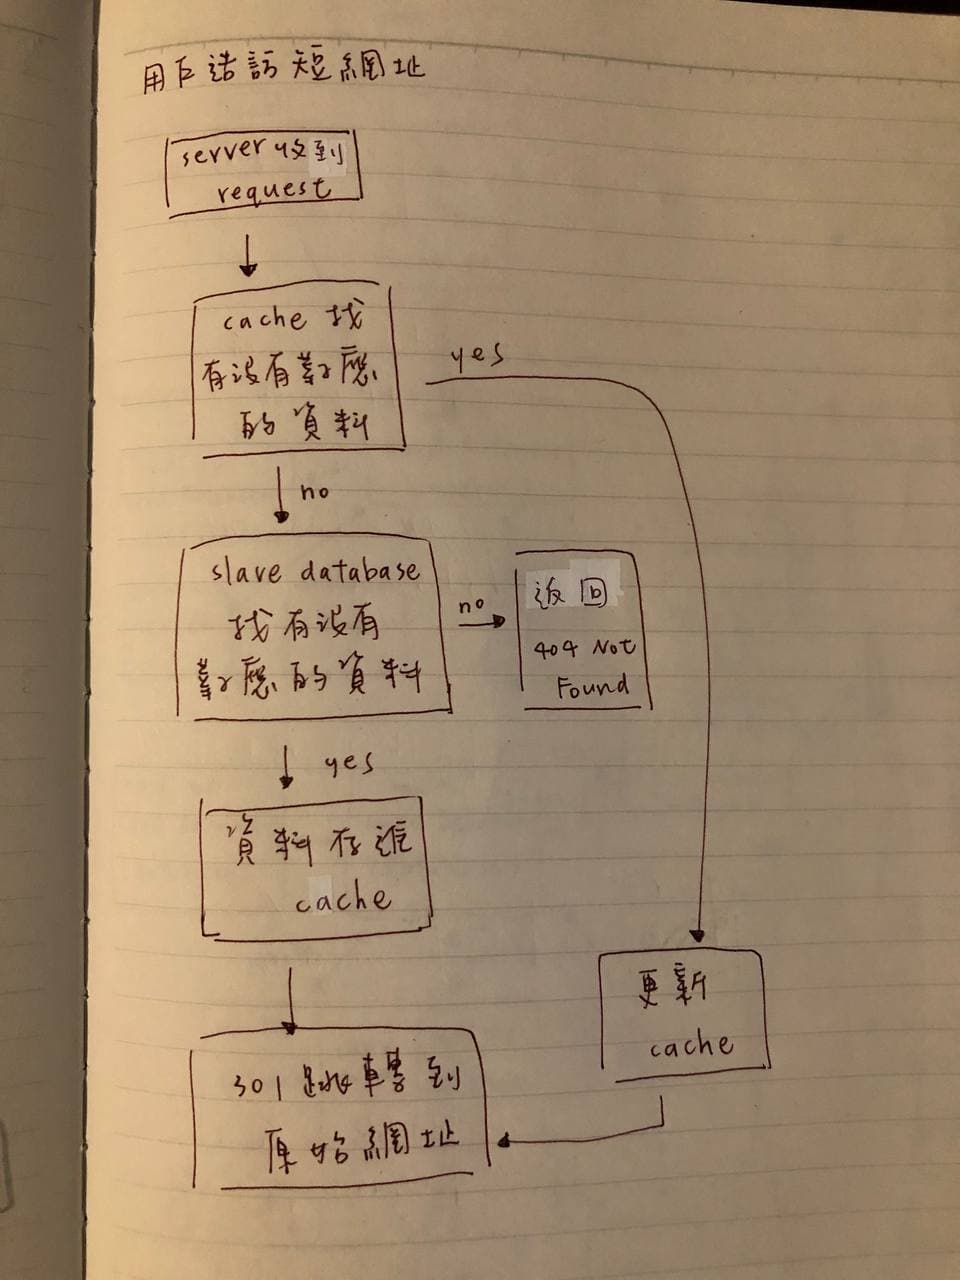 用戶造訪短網址
server 收到
request
cache 找
有沒有對應
的資料
yes
no
slave database
找有沒有
對應的資料
no
返回
404 Not
Found
yes
資料存進
cache
更新
cache
301 跳轉到
原始網址